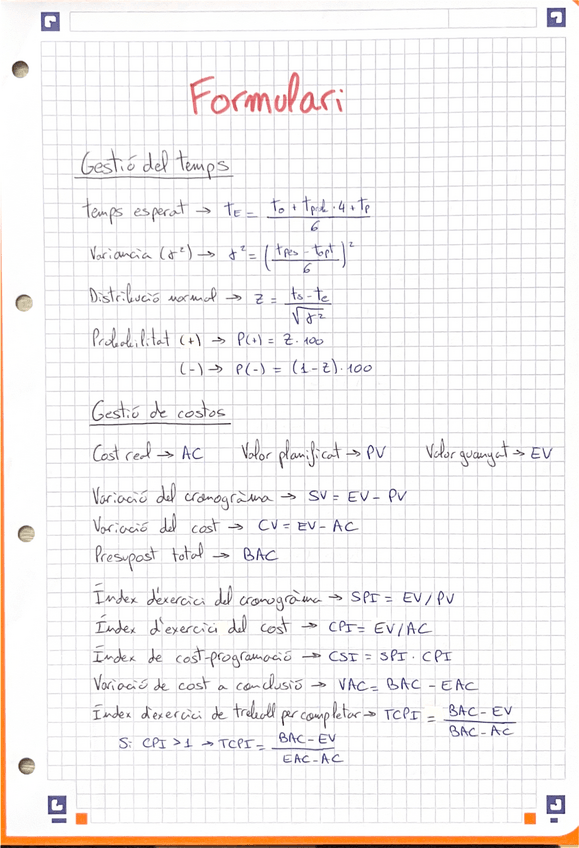 Formulari
Gestió del temps
temps esperat → tE = (to + tprob · 4 + tp) / 6
Variancia (γ²) → γ² = ((tpes - topt) / 6)²
Distribució normal → Z = (ts - te) / √γ²
Probabilitat (+) → P(+) = Z · 100
(-) → P(-) = (1 - Z) · 100
Gestió de costos
Cost real → AC Valor planificat → PV Valor guanyat → EV
Variació del cronogràma → SV = EV - PV
Variació del cost → CV = EV - AC
Presupost total → BAC
Índex d'exercici del cronogràma → SPI = EV / PV
Índex d'exercici del cost → CPI = EV / AC
Índex de cost-programació → CSI = SPI · CPI
Variació de cost a conclusió → VAC = BAC - EAC
Índex d'exercici de treball per completar → TCPI = (BAC - EV) / (BAC - AC)
Si CPI > 1 → TCPI = (BAC - EV) / (EAC - AC)